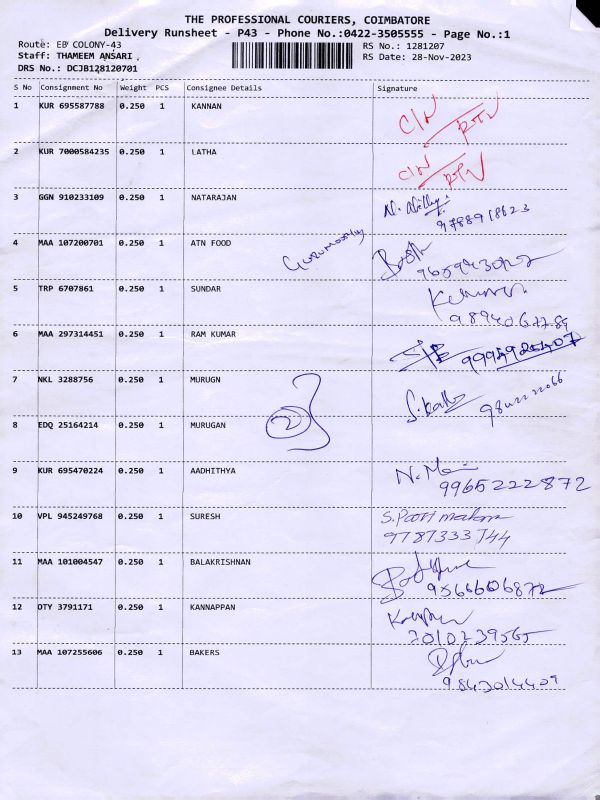 THE PROFESSIONAL COURIERS, COIMBATORE
Delivery Runsheet - P43 - Phone No.:0422-3505555 - Page No.:1
Route: EB COLONY-43 RS No.: 1281207
Staff: THAMEEM ANSARI . RS Date: 28-Nov-2023
DRS No.: DCJB128120701
S No Consignment No Weight PCS Consignee Details Signature
1 KUR 695587788 0.250 1 KANNAN C/N RTV
2 KUR 7000584235 0.250 1 LATHA C/N RTV
3 GGN 910233109 0.250 1 NATARAJAN
4 MAA 107200701 0.250 1 ATN FOOD
5 TRP 6707861 0.250 1 SUNDAR
6 MAA 297314451 0.250 1 RAM KUMAR
7 NKL 3288756 0.250 1 MURUGN
8 EDQ 25164214 0.250 1 MURUGAN
9 KUR 695470224 0.250 1 AADHITHYA
9965222872
10 VPL 945249768 0.250 1 SURESH
9787333744
11 MAA 101004547 0.250 1 BALAKRISHNAN
9566606872
12 OTY 3791171 0.250 1 KANNAPPAN
13 MAA 107255606 0.250 1 BAKERS
9843014409